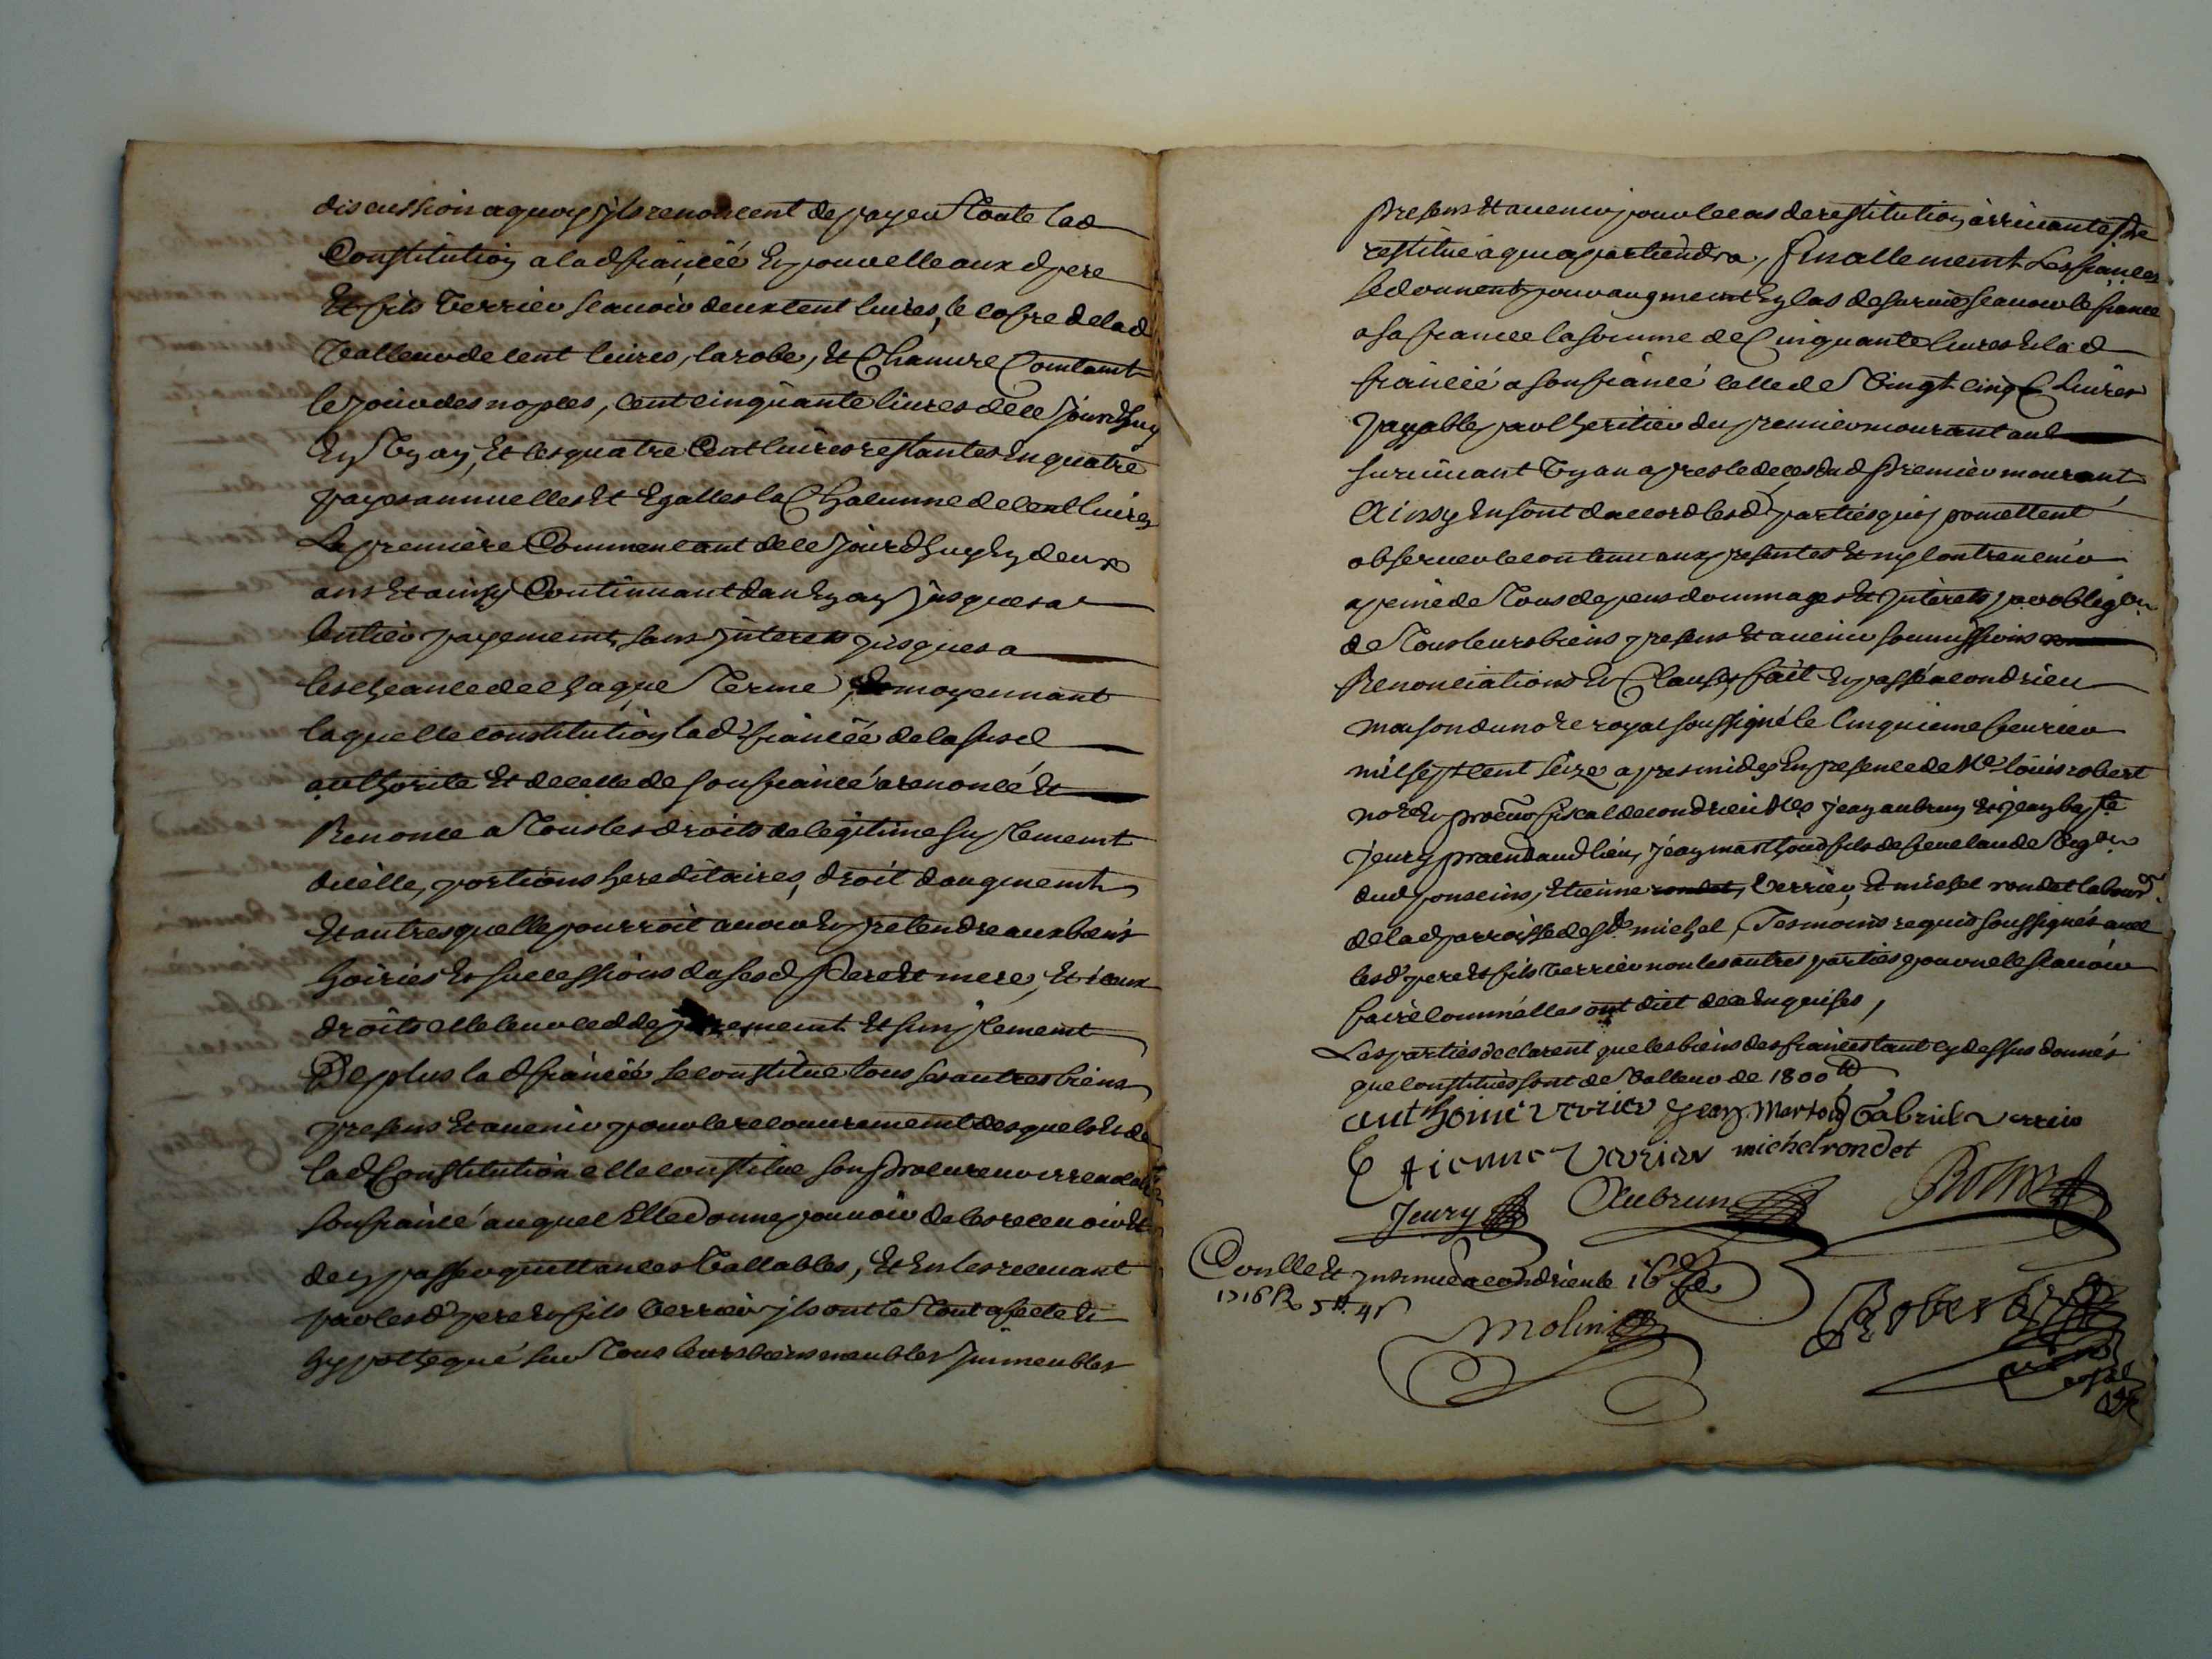 discussion a quoy ils renoncent de payer toute lad
Constitution a lad fiancéé Et pour elle aux d pere
Et fils Verrier scauoir deux cent liures, le cofre de lad
Valleur de cent liures, la robe, Et Chanure Comtamt
le jour des nopces, cent cinquante liures de ce jourdhuy
En Vn an, Et les quatre Cent liures restantes En quatre
payes annuelles Et Egalles la Chacunne de cent liures
La premiere Commencant de ce jourdhuy En deux
ans Et ainsy Continuant dan En an jusques a
lentier payement, sans jnterets jusques a
lescheance de chaque terme, moyennant
laquelle constitution lad fiancéé de la susd
authorite Et de celle de son fiancé a renoncé Et
Renonce a tous les droits de legitime suplement
dicelle, portions hereditaires, droit daugment
Et autres quelle pourroit auoir Et pretendre aux biens
hoiries Et successions de sesd Pere Et mere, Et iceux
droits elle leur cedde purement Et simplement
De plus lad fiancéé se constitue tous ses autres biens
presens Et auenir pour le recouurement desquels Et de
lad Constitution elle constitue son Procureur irreuocable
son fiancé auquel Elle donne pouuoir de les receuoir Et
den passer quittances Vallables, Et En les receuant
par lesd pere Et fils Verrier ils ont le tout afecté Et
hypothequé sur tous leurs biens meubles Jmmeubles
Presens Et auenir pour le cas de restitution arriuant estre
restitue a qui apartiendra, finallement Les fiances
se donnent pour augment En cas de suruie scauoir le fiance
a sa fiancee la somme de Cinquante liures Et lad
fiancéé a son fiancé celle de Vingt cinq liures
payable par lheritier du premier mourant aud
suruiuant Vn an apres le deces dud Premier mourant
Ainsy En sont daccord lesd parties qui promettent
obseruer le contenu aux presentes Et ny contreuenir
a peine de tous depens dommages Et jnterets par obligon
de tous leurs biens presens Et auenir soumissions
Renonciations Et Clauses, fait Et passé a condrieu
maison du nore royal soussigné le Cinquieme feurier
mil sept cent seize apres midy En presence de Me louis robert
nore Et procur fiscal de condrieu Mes jean aubrun Et jean bapte
jeury praen dud lieu, jean marthoud fils de feu claude Vigon
dud jonseins, Etienne Verrier, Et michel rondet labour
de lad parroisse de St michel, Tesmoins requis soussignés auec
lesd pere Et fils Verrier non les autres parties pour ne le scauoir
faire comm'elles ont dict de ce Enquises,
Les parties declarent que les biens des fiancés tant cy dessus donnés
que constitués sont de Valleur de 1800 tt
anthoine verrier jean Martoud Gabriel verrier
Etienne Verrier michel rondet
Jeury Aubrun Robert
Conlle Et jnsinué a condrieu le 16
1716 R 5tt 4s
molin Robert